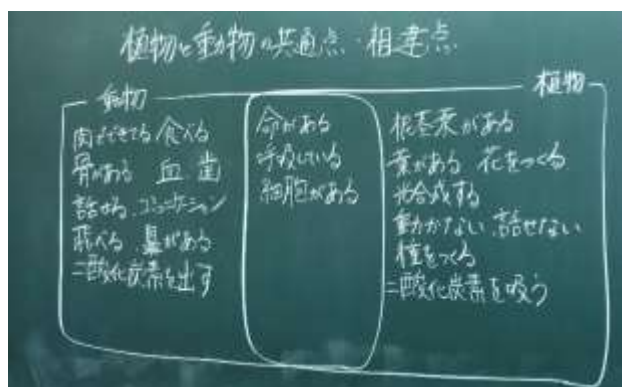 植物と動物の共通点・相違点
動物
肉でできてる 食べる
骨がある 血 歯
話せる コミュニケーション
飛べる 鼻がある
二酸化炭素を出す
命がある
呼吸している
細胞がある
植物
根茎葉がある
葉がある 花をつくる
光合成する
動かない 話せない
種をつくる
二酸化炭素を吸う